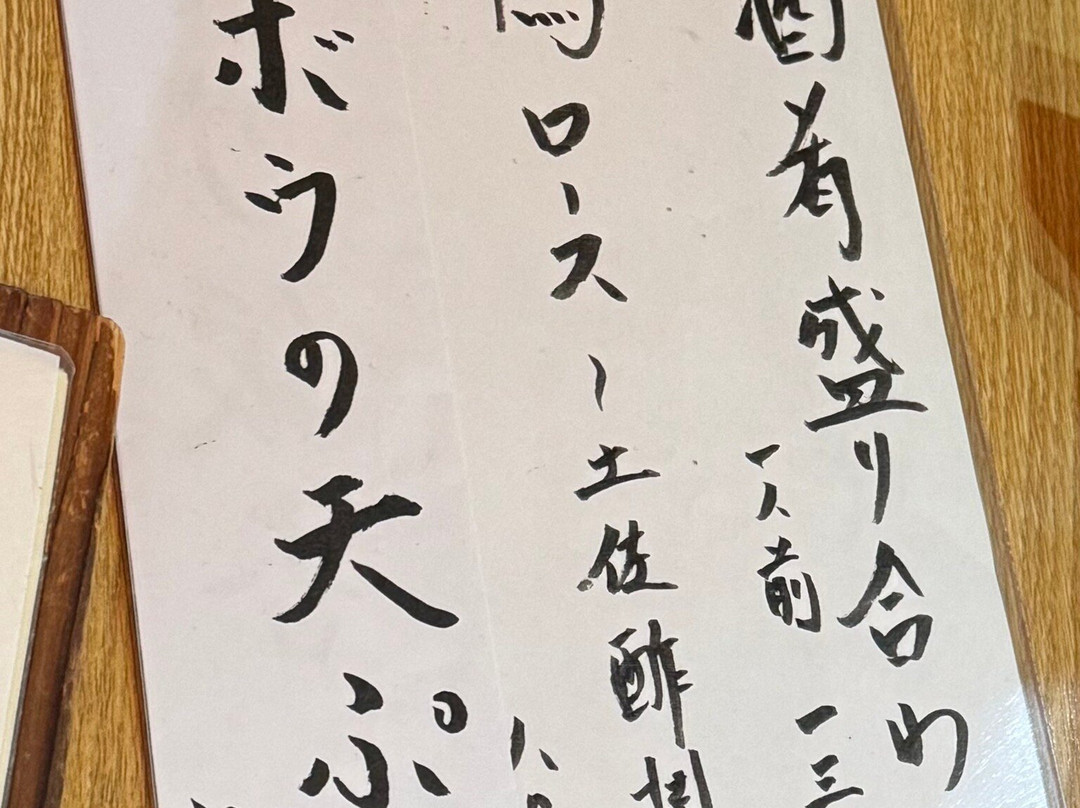 酒肴盛り合わ
一人前 一三
ロース 土佐酢掛
ボウの天ぷ